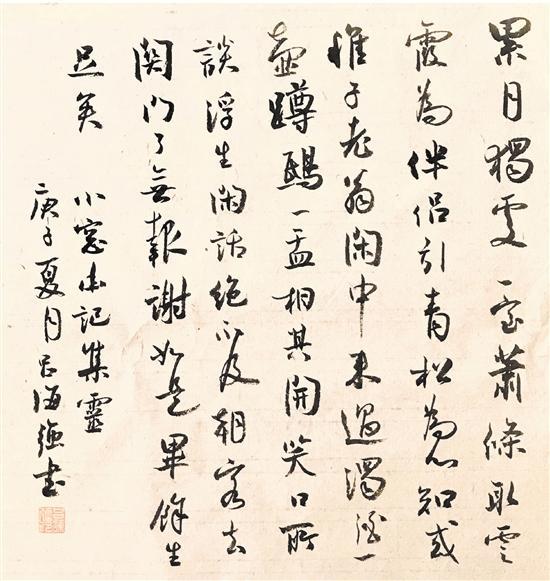 累月獨處一室蕭條取雲
霞為伴侣引青松為心知或
稚子老翁閑中來過濁酒一
壺蹲鴟一盂相其開笑口所
談浮生閑話絶不及朝客去
関門了無報謝如是畢餘生
足矣
小窓幽記集靈
庚子夏月吕海強書